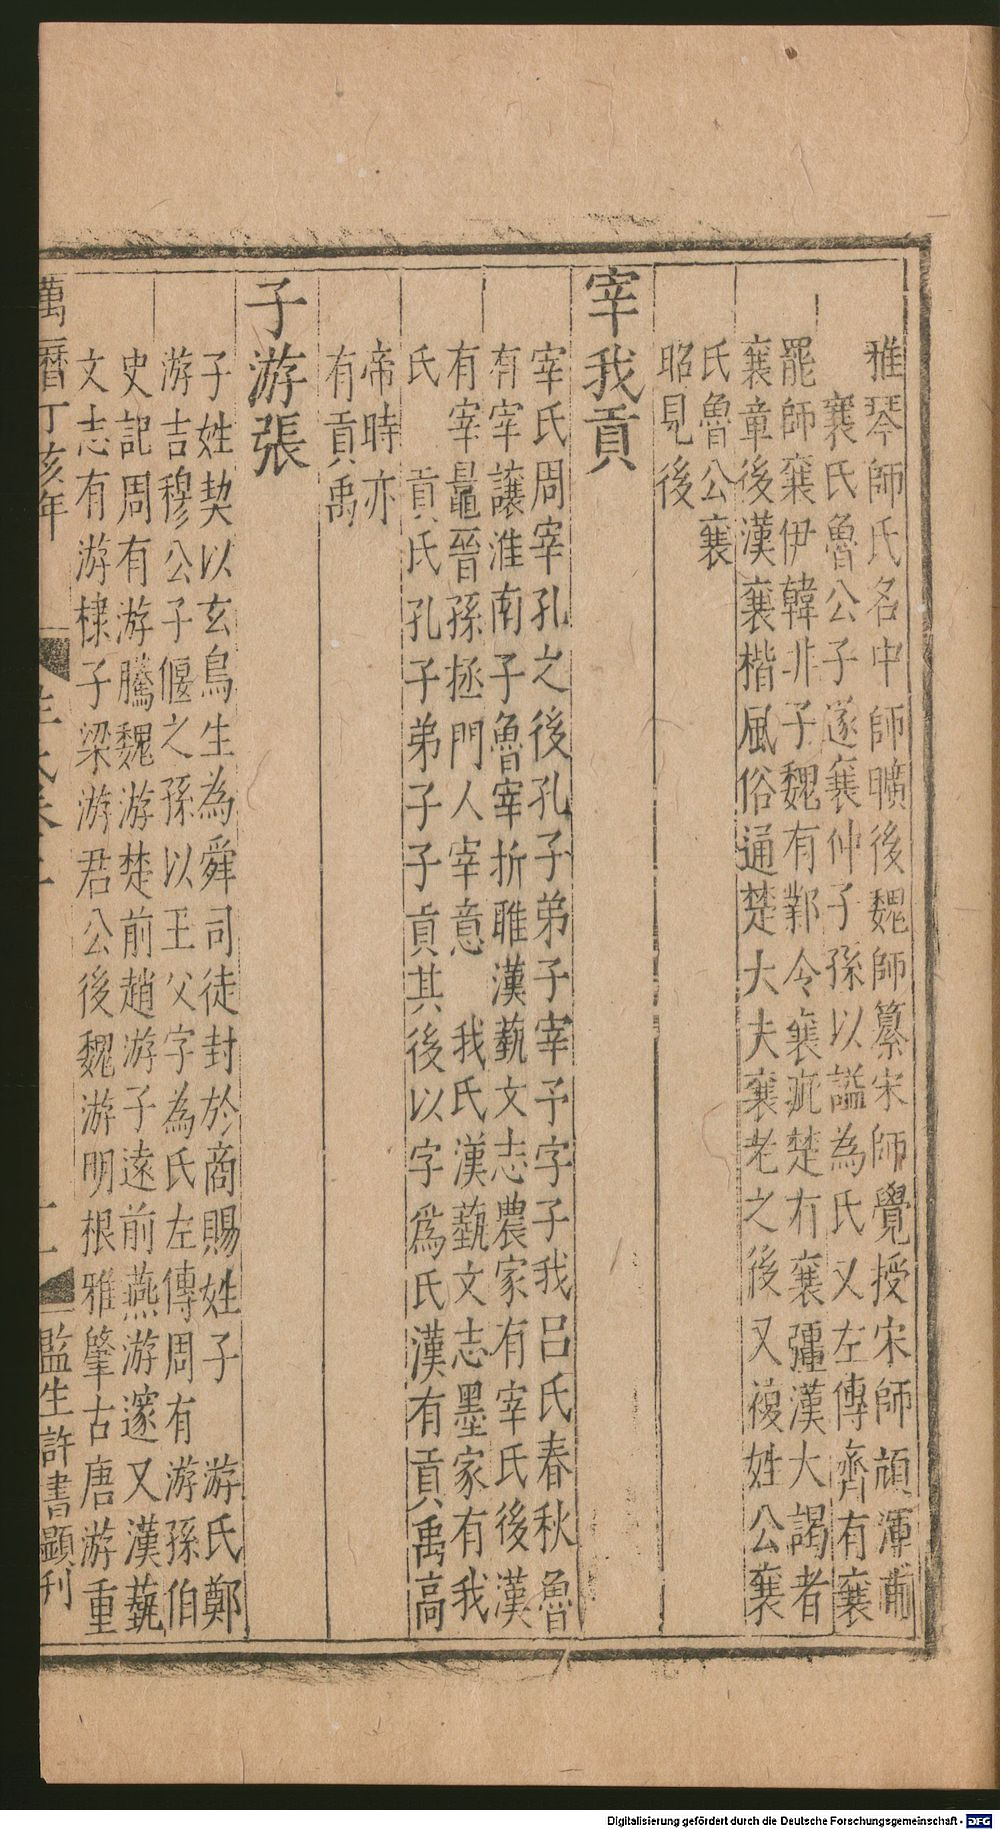 雅琴師氏名中師曠後魏師纂宋師覺授宋師頏渾甫
襄氏魯公子遂襄仲子孫以謚為氏又左傳齊有襄
罷師襄伊韓非子魏有鄴令襄疵楚有襄彊漢大謁者
襄章後漢襄楷風俗通楚大夫襄老之後又複姓公襄
氏魯公襄
昭見後
宰我貢
宰氏周宰孔之後孔子弟子宰予字子我呂氏春秋魯
有宰讓淮南子魯宰折睢漢藝文志農家有宰氏後漢
有宰鼂晉孫拯門人宰意 我氏漢藝文志墨家有我
氏 貢氏孔子弟子子貢其後以字爲氏漢有貢禹高
帝時亦
有貢禹
子游張
子姓契以玄鳥生為舜司徒封於商賜姓子 游氏鄭
游吉穆公子偃之孫以王父字為氏左傳周有游孫伯
史記周有游騰魏游楚前趙游子遠前燕游邃又漢藝
文志有游棣子梁游君公後魏游明根雅肇古唐游重
萬曆丁亥年
監生許書顯刊
Digitalisierung gefördert durch die Deutsche Forschungsgemeinschaft - DFG